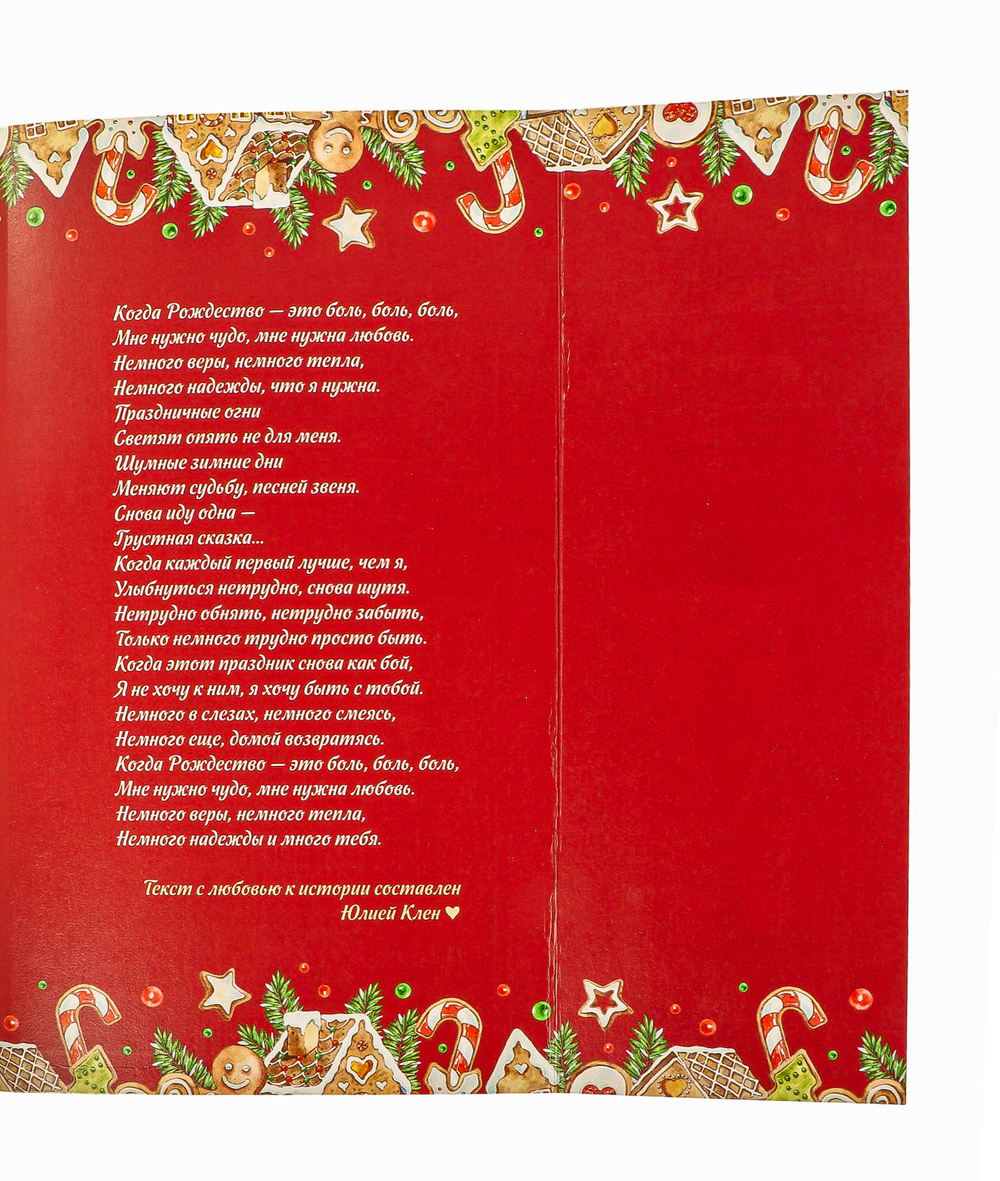 Когда Рождество — это боль, боль, боль,
Мне нужно чудо, мне нужна любовь.
Немного веры, немного тепла,
Немного надежды, что я нужна.
Праздничные огни
Светят опять не для меня.
Шумные зимние дни
Меняют судьбу, песней звеня.
Снова иду одна —
Грустная сказка...
Когда каждый первый лучше, чем я,
Улыбнуться нетрудно, снова шутя.
Нетрудно обнять, нетрудно забыть,
Только немного трудно просто быть.
Когда этот праздник снова как бой,
Я не хочу к ним, я хочу быть с тобой.
Немного в слезах, немного смеясь,
Немного еще, домой возвратясь.
Когда Рождество — это боль, боль, боль,
Мне нужно чудо, мне нужна любовь.
Немного веры, немного тепла,
Немного надежды и много тебя.
Текст с любовью к истории составлен
Юлией Клен ♥